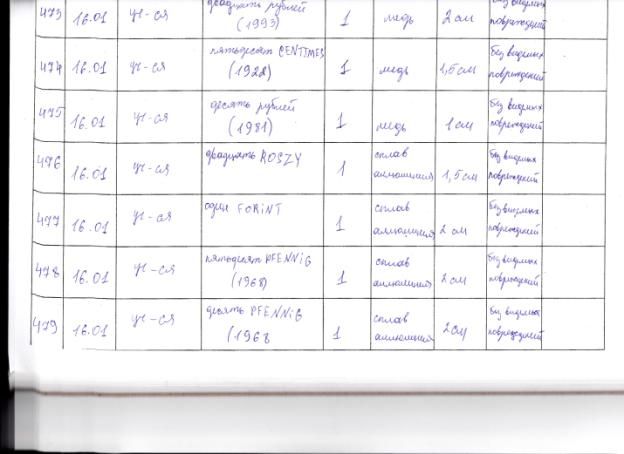 473 16.01 уч-ся двадцать рублей (1993) 1 медь 2 см без видимых повреждений
474 16.01 уч-ся пятьдесят CENTIMES (1922) 1 медь 1,5 см без видимых повреждений
475 16.01 уч-ся десять рублей (1981) 1 медь 1 см без видимых повреждений
476 16.01 уч-ся двадцать ROSZY 1 сплав алюминия 1,5 см без видимых повреждений
477 16.01 уч-ся один FORINT 1 сплав алюминия 2 см без видимых повреждений
478 16.01 уч-ся пятьдесят PFENNiG (1968) 1 сплав алюминия 2 см без видимых повреждений
479 16.01 уч-ся десять PFENNiG (1968 1 сплав алюминия 2 см без видимых повреждений